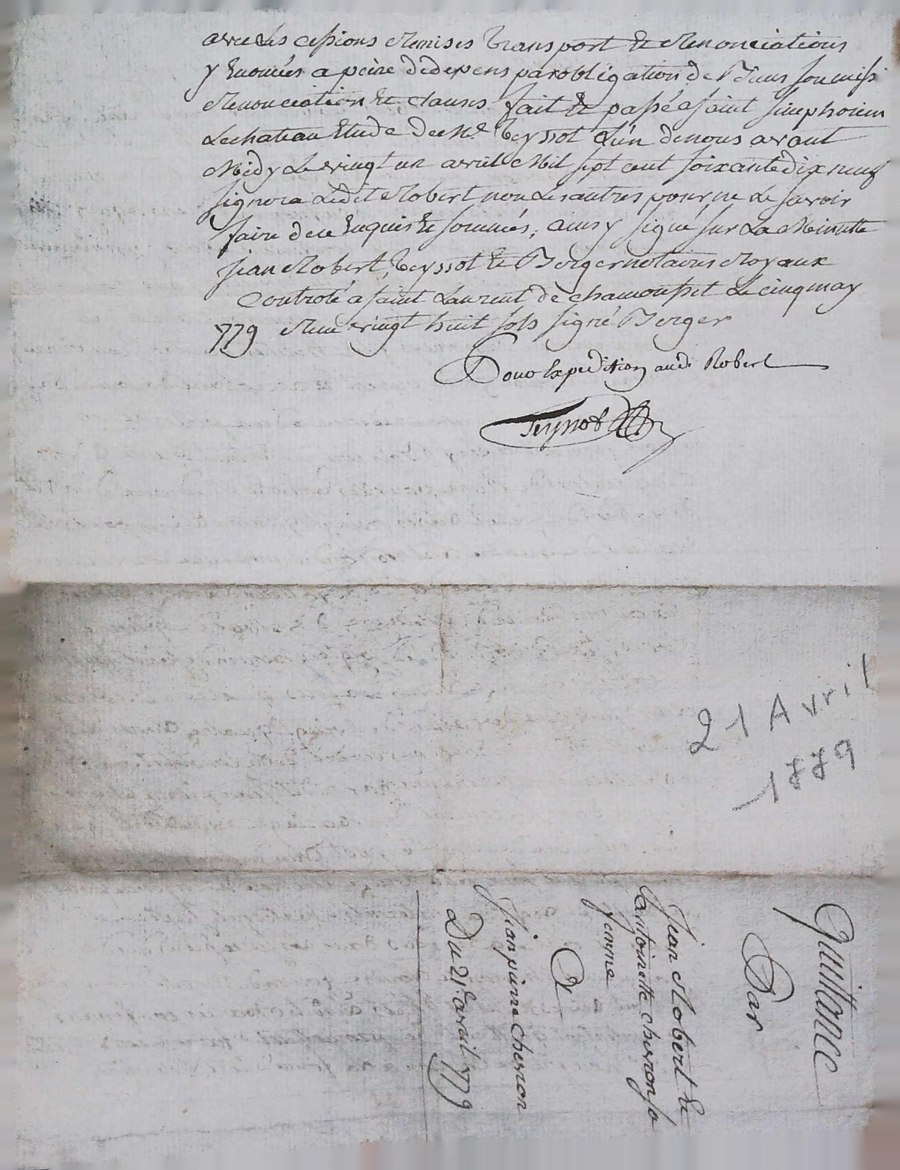 avec les cessions remises transport et renonciations
y Enoncées a peine de depens par obligation de Biens soumissi
Renonciation et clauses fait et passé a saint simphorien
Le chateau Etude de Me teyssot L'un de nous avant
Midy Le vingt un avril Mil sept cent soixante dix neuf
signera Ledit Robert non Les autres pour ne Le savoir
faire de ce Enquis et sommés, ainsy signé sur La Minutte
jean Robert, teyssot et Berger notaires Royaux
Controlé a saint Laurent de chamousset Le cinq may
779 Reçu vingt huit sols signé Berger
Pour Expedition audit Robert
Teyssot
21 Avril
1779
Quittance
Par
jean Robert et
antoinette cheron sa
femme
A
jean pierre cheron
Du 21e. avril 1779